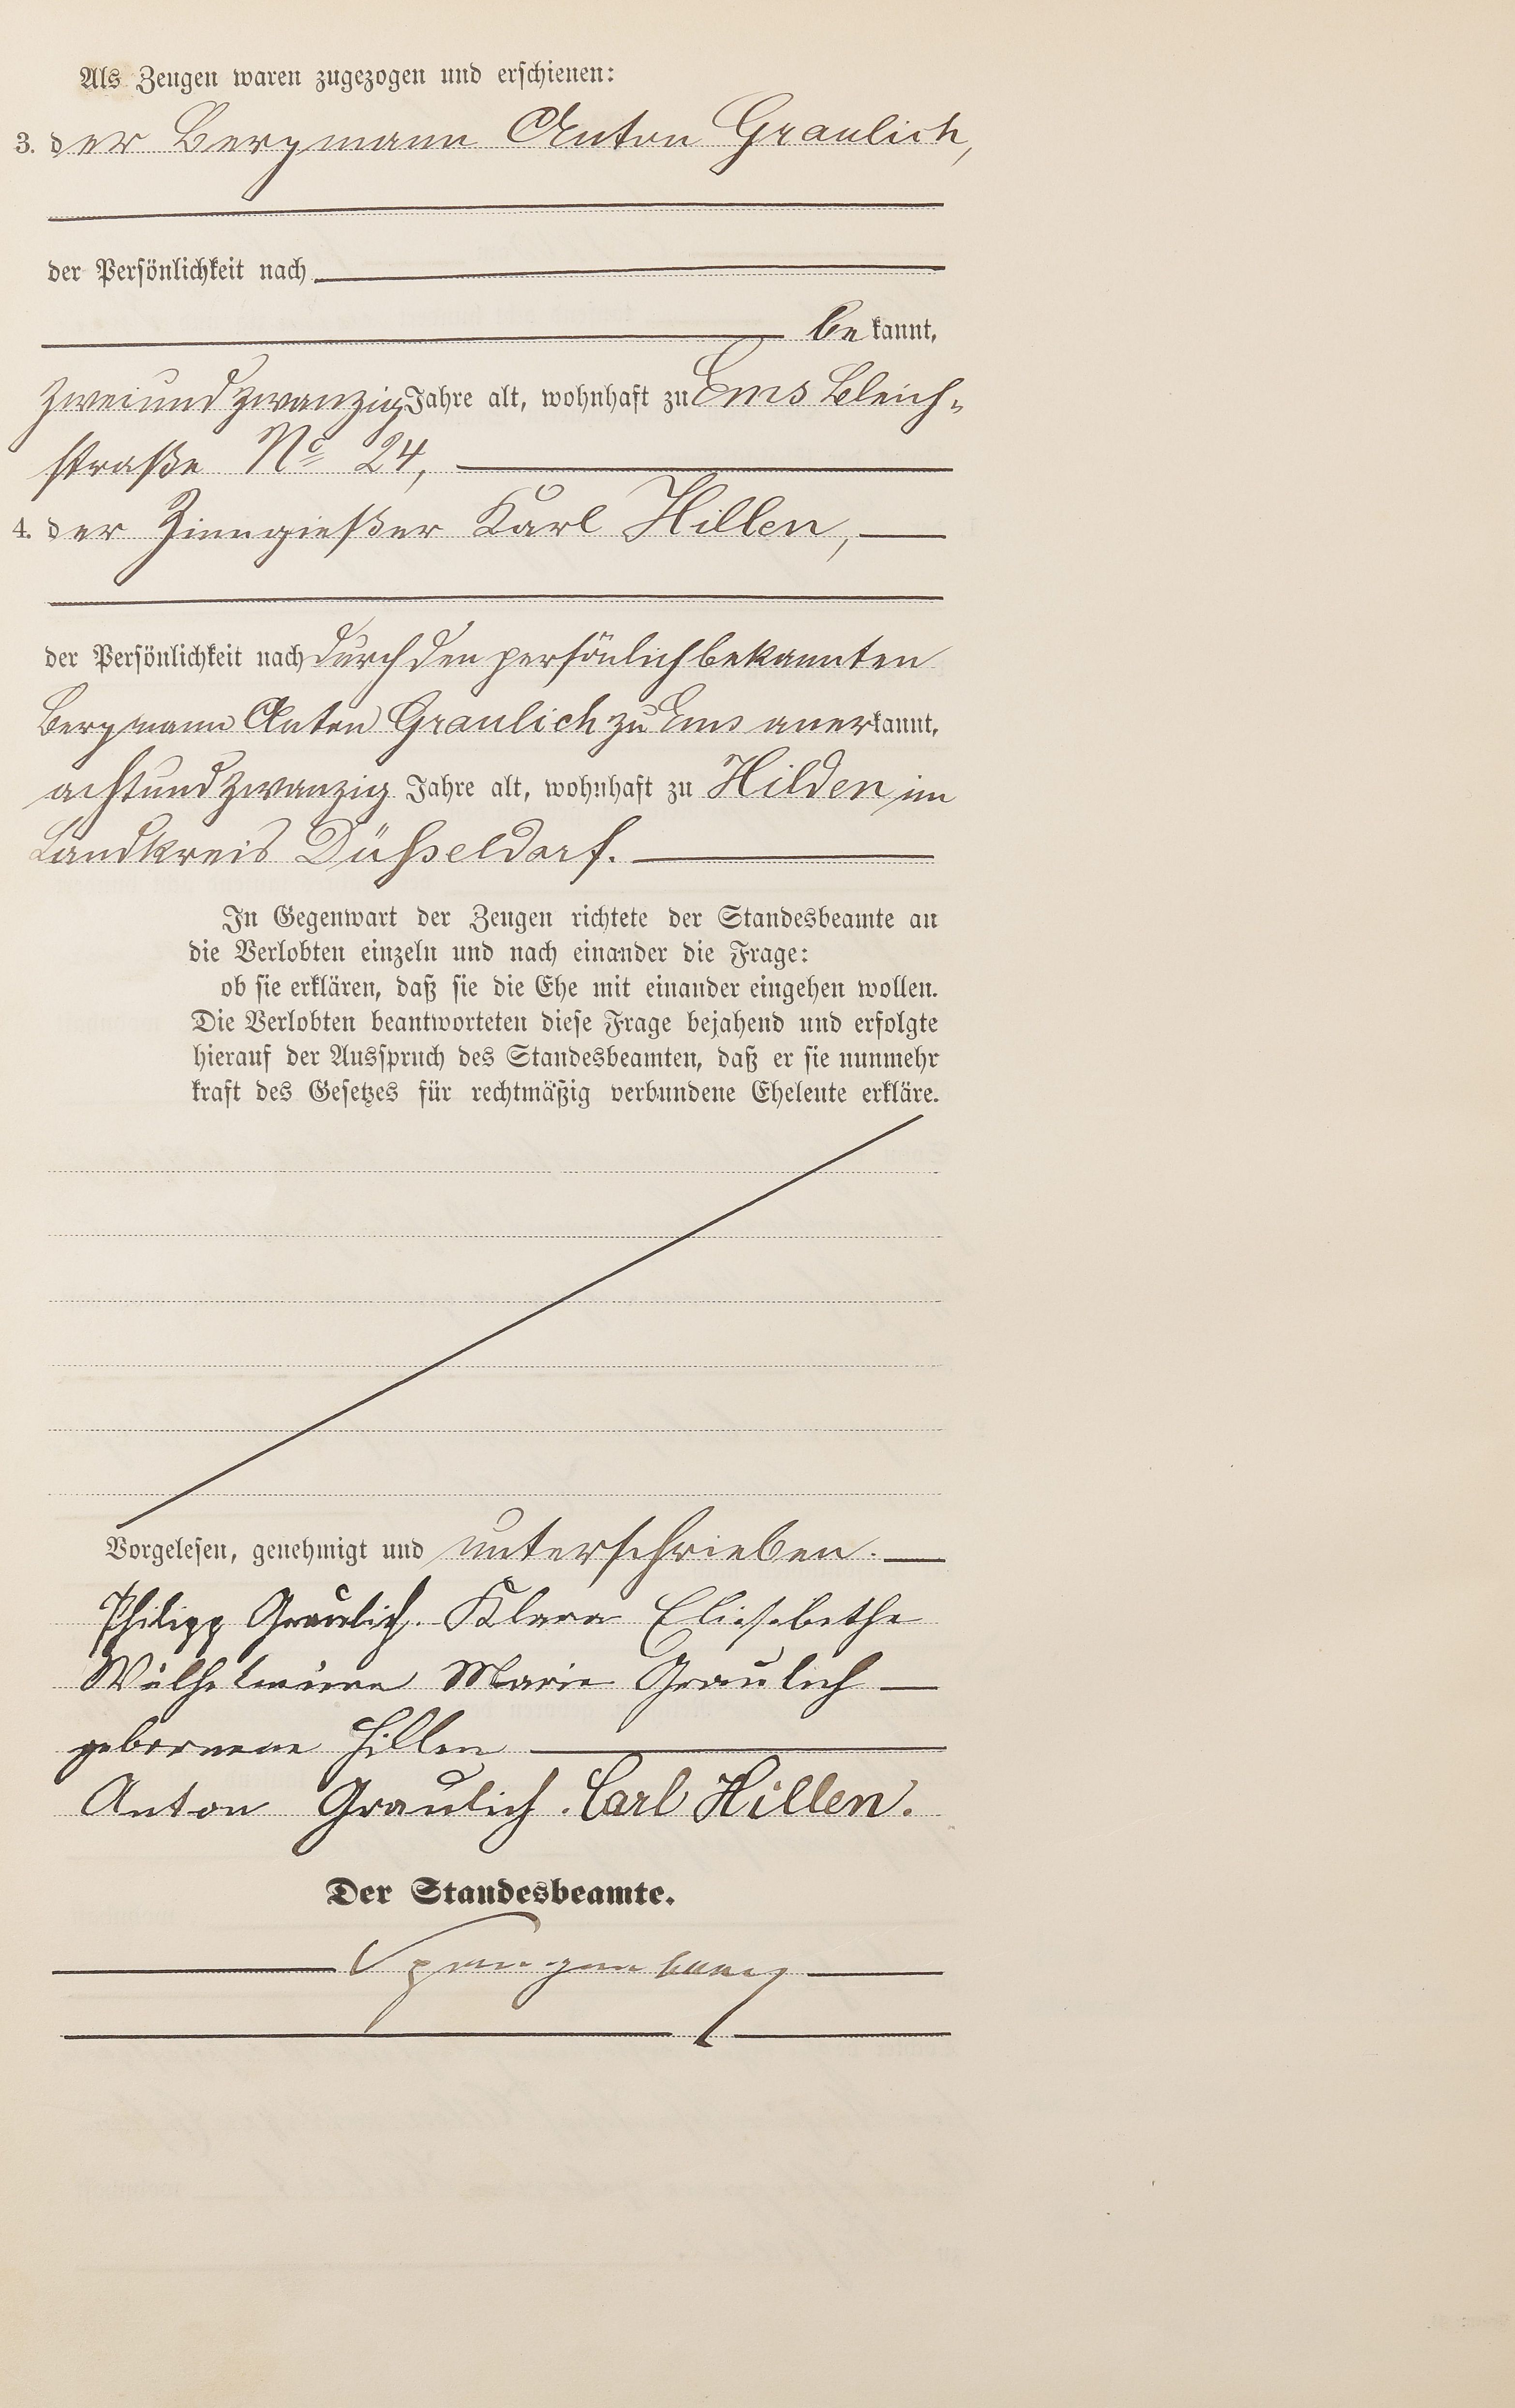 Als Zeugen waren zugezogen und erschienen:
3. der Bergmann Anton Graulich,
der Persönlichkeit nach
be kannt,
zweiundzwanzig Jahre alt, wohnhaft zu Ems Bleich-
straße No 24,
4. der Zinngießer Karl Hillen,
der Persönlichkeit nach durch den persönlich bekannten
Bergmann Anton Graulich zu Ems anerkannt,
achtundzwanzig Jahre alt, wohnhaft zu Hilden im
Landkreis Düsseldorf.
In Gegenwart der Zeugen richtete der Standesbeamte an
die Verlobten einzeln und nach einander die Frage:
ob sie erklären, daß sie die Ehe mit einander eingehen wollen.
Die Verlobten beantworteten diese Frage bejahend und erfolgte
hierauf der Ausspruch des Standesbeamten, daß er sie nunmehr
kraft des Gesetzes für rechtmäßig verbundene Eheleute erkläre.
Vorgelesen, genehmigt und unterschrieben.
Philipp Graulich. Klara Eliesebethe
Wilhelmine Marie Graulich
gebornene Hillen
Anton Graulich. Carl Hillen.
Der Standesbeamte.